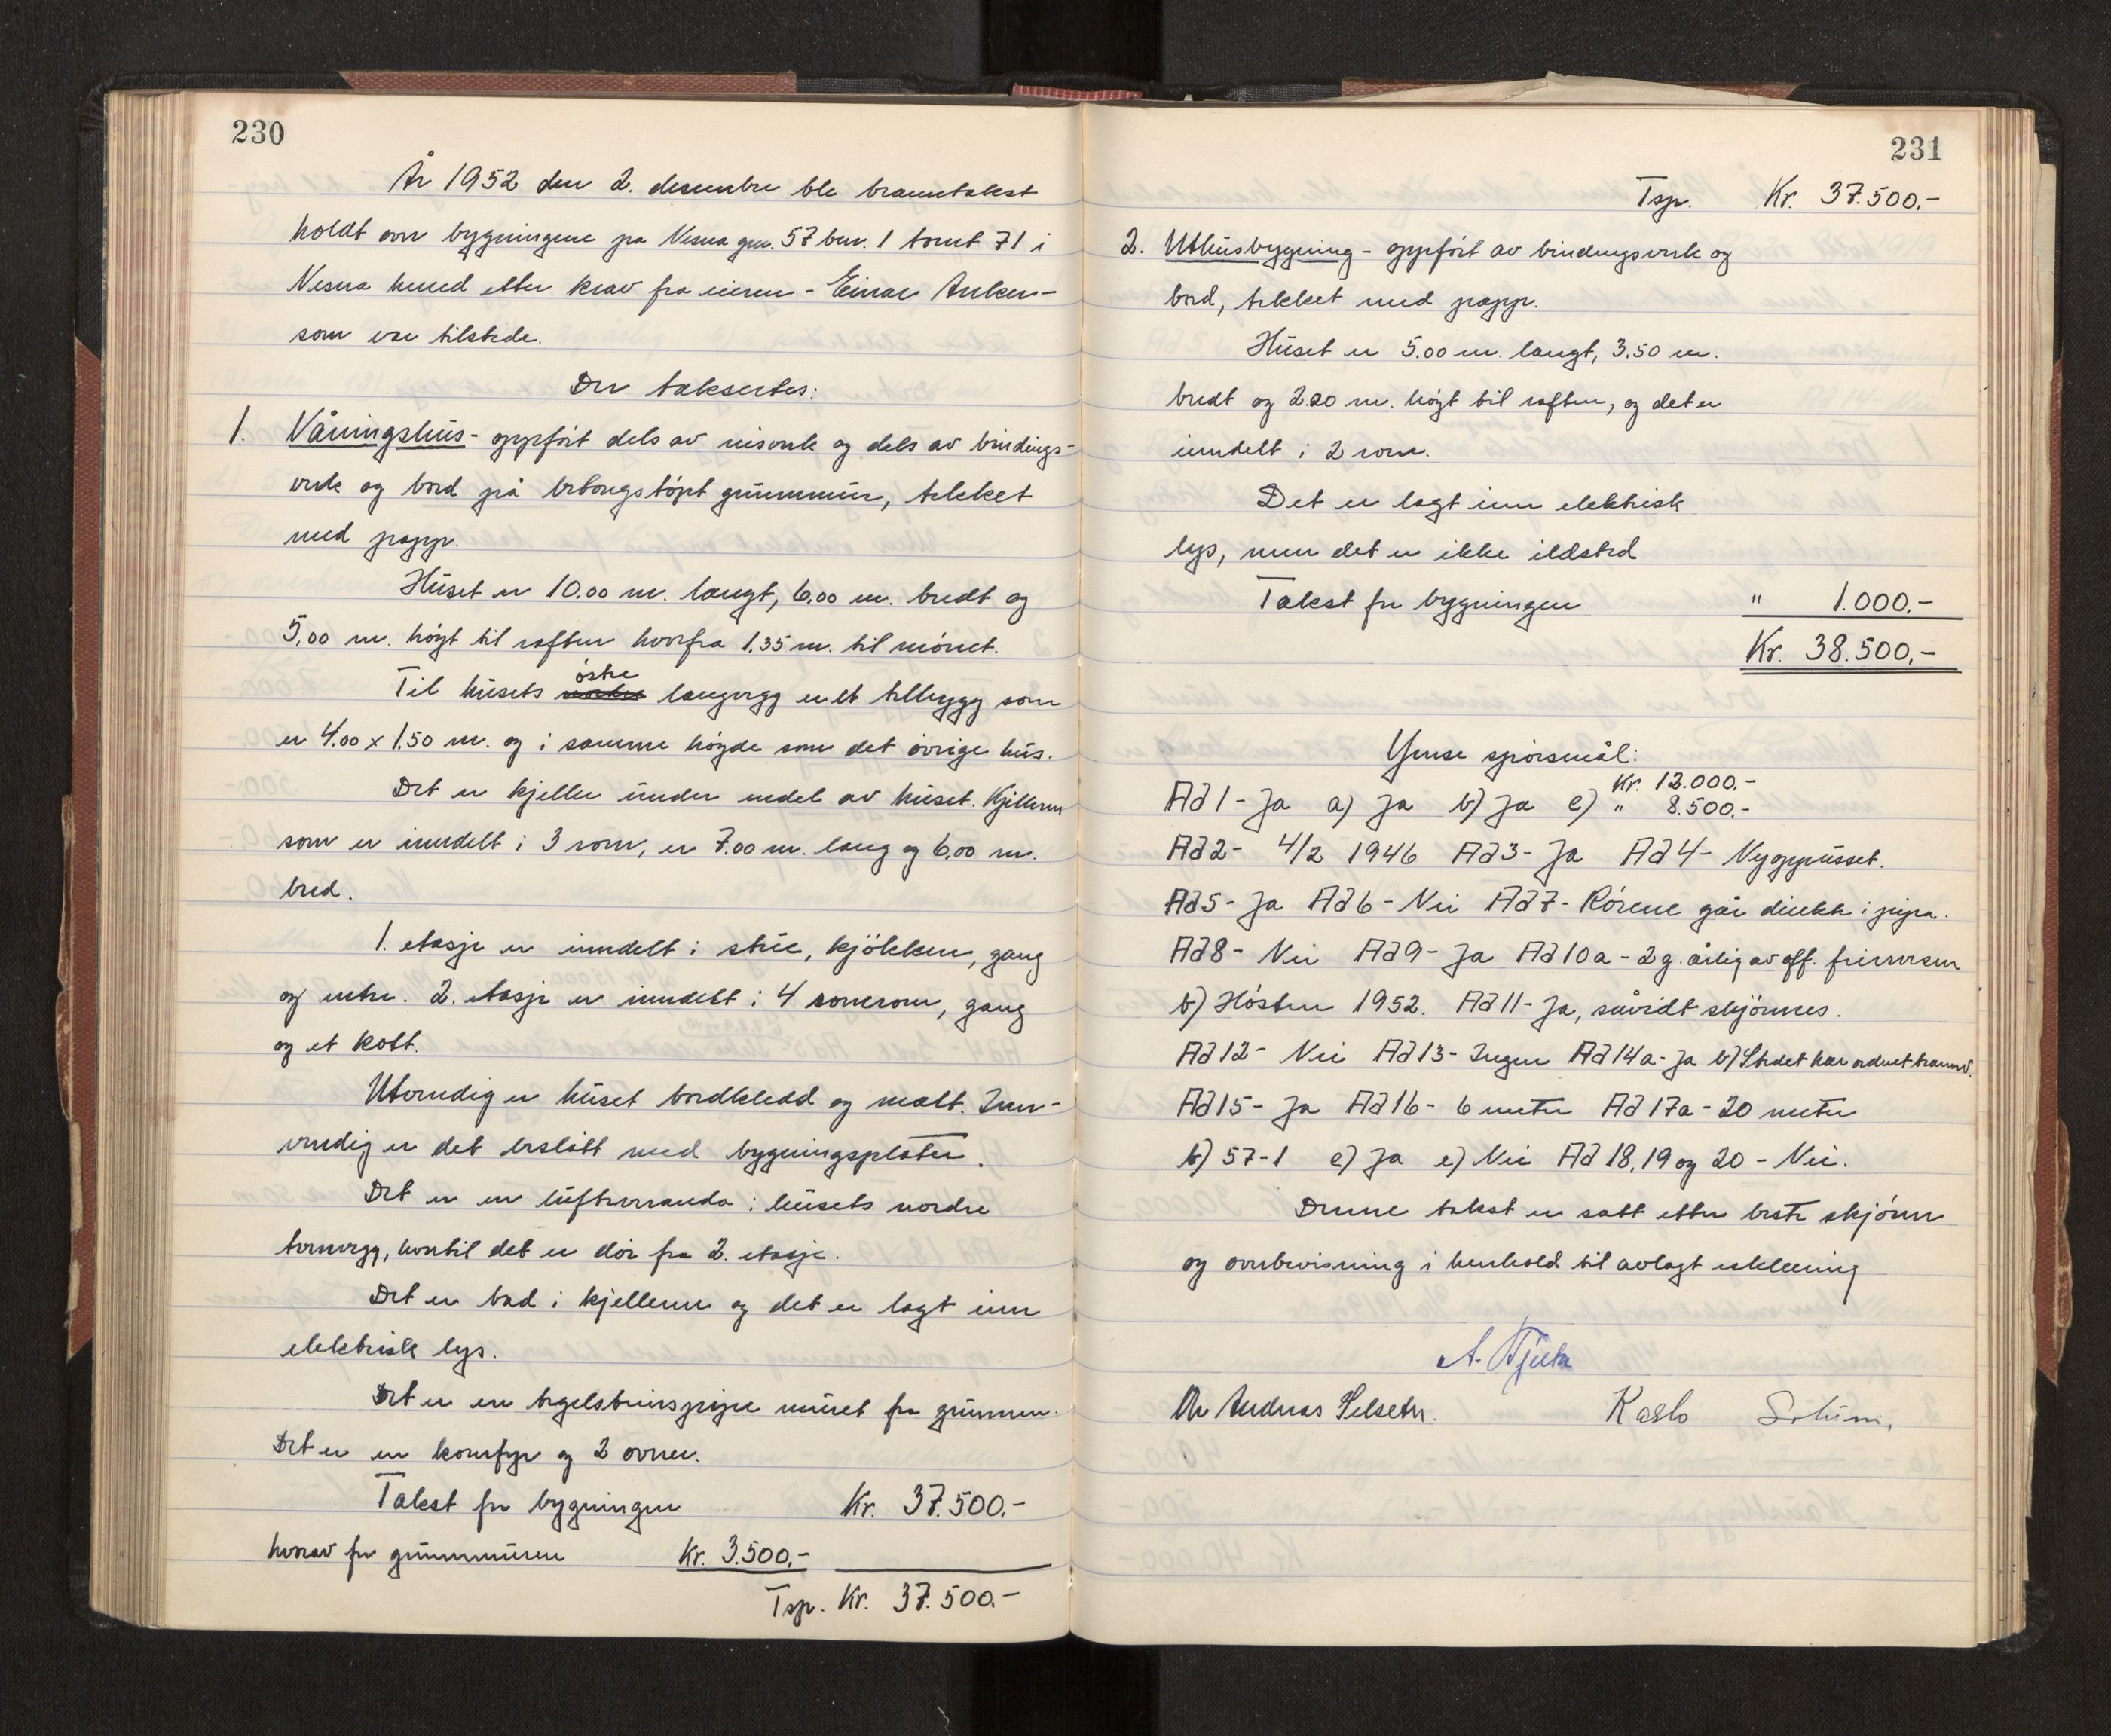 230
År 1952 den 2. desember ble branntakst
holdt over bygningene på Nesna gnr. 57 bnr. 1 tomt 71 i
Nesna herred etter krav fra eieren - Einar Anker -
som var tilstede.
Der taksertes:
1. Våningshus - oppført dels av reisverk og dels av bindings-
verk og bord på betongstøpt grunnmur, tekket
med papp.
Huset er 10.00 m. langt, 6.00 m. bredt og
5,00 m. høgt til raften hvorfra 1.35 m. til mønet.
østre
Til husets nordre langvegg er et tilbygg som
er 4.00 x 1.50 m. og i samme høgde som det øvrige hus.
Det er kjeller under endel av huset. Kjelleren
som er inndelt i 3 rom, er 7.00 m. lang og 6,00 m.
bred.
1. etasje er inndelt i stue, kjøkken, gang
og entre. 2. etasje er inndelt i 4 soverom, gang
og et kott.
Utvendig er huset bordkledd og malt. Inn-
vendig er det beslått med bygningsplater.
Det er en luftveranda i husets nordre
tverrvegg, hvortil det er dør fra 2. etasje.
Det er bad i kjelleren og det er lagt inn
elektrisk lys.
Det er en teglsteinspipe muret fra grunnen.
Det er en komfyr og 2 ovner.
Takst for bygningen Kr. 37.500.-
hvorav for grunnmuren Kr. 3.500,-
Tsp. Kr. 37.500.-
231
Tsp. Kr. 37.500,-
2. Uthusbygning - oppført av bindingsverk og
bord, tekket med papp.
Huset er 5.00 m. langt, 3.50 m.
bredt og 2.20 m. høgt til raften, og det er
inndelt i 2 rom.
Det er lagt inn elektrisk
lys, men det er ikke ildsted
Takst for bygningen " 1.000.-
Kr. 38.500,-
Ymse spørsmål:
Kr. 12.000.-
Ad 1 - Ja a) Ja b) Ja c) " 8.500.-
Ad 2 - 4/2 1946 Ad 3 - Ja Ad 4 - Nyoppusset.
Ad 5 - Ja Ad 6 - Nei Ad 7 - Rørene går direkte i pipa.
Ad 8 - Nei Ad 9 - Ja Ad 10 a - 2 g. årlig av off. feiervesen
b) Høsten 1952. Ad 11 - Ja, såvidt skjønnes.
Ad 12 - Nei Ad 13 - Ingen Ad 14 a - Ja b) Stedet har ordnet brannv.
Ad 15 - Ja Ad 16 - 6 meter Ad 17 a - 20 meter
b) 57-1 c) Ja e) Nei Ad 18, 19 og 20 - Nei.
Denne takst er satt etter beste skjønn
og overbevisning i henhold til avlagt erklæring
A.
Andreas Selseter. Karlo